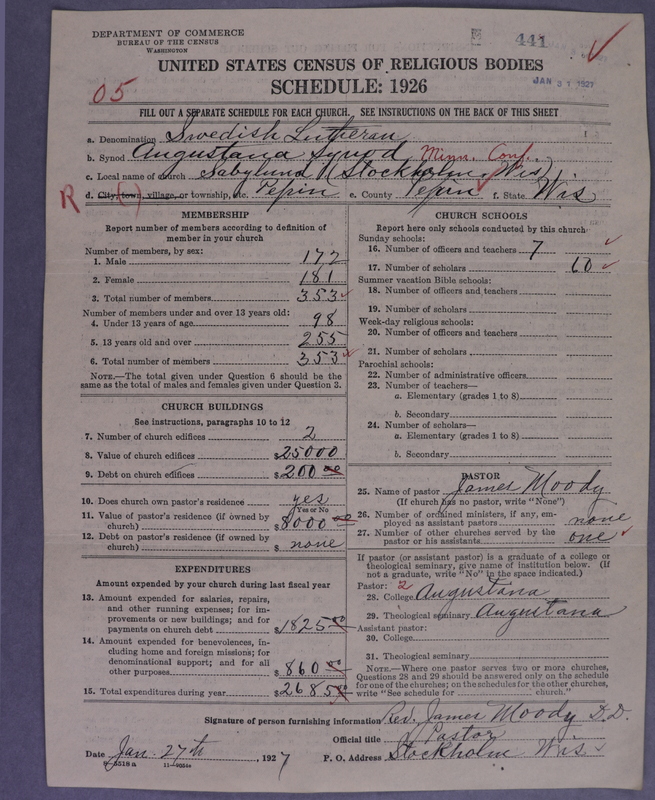 DEPARTMENT OF COMMERCE
BUREAU OF THE CENSUS
WASHINGTON
441
JAN 31 1927
UNITED STATES CENSUS OF RELIGIOUS BODIES
SCHEDULE: 1926
05
FILL OUT A SEPARATE SCHEDULE FOR EACH CHURCH. SEE INSTRUCTIONS ON THE BACK OF THIS SHEET
a. Denomination Swedish Lutheran
b. Synod Augustana Synod, Minn. Conf.
c. Local name of church Sabylund N Stockholm, Wis
R
d. City, town, village, or township, etc. Pepin e. County Pepin f. State Wis
MEMBERSHIP
Report number of members according to definition of
member in your church
Number of members, by sex:
1. Male 172
2. Female 181
3. Total number of members 353
Number of members under and over 13 years old:
4. Under 13 years of age 98
5. 13 years old and over 255
6. Total number of members 353
NOTE.—The total given under Question 6 should be the
same as the total of males and females given under Question 3.
CHURCH BUILDINGS
See instructions, paragraphs 10 to 12
7. Number of church edifices 2
8. Value of church edifices $25000
9. Debt on church edifices $200 00
10. Does church own pastor's residence yes
Yes or No
11. Value of pastor's residence (if owned by
church) $8000 00
12. Debt on pastor's residence (if owned by
church) $ none
EXPENDITURES
Amount expended by your church during last fiscal year
13. Amount expended for salaries, repairs,
and other running expenses; for im-
provements or new buildings; and for
payments on church debt $1825
14. Amount expended for benevolences, in-
cluding home and foreign missions; for
denominational support; and for all
other purposes $860
15. Total expenditures during year $2685
CHURCH SCHOOLS
Report here only schools conducted by this church
Sunday schools:
16. Number of officers and teachers 7
17. Number of scholars 60
Summer vacation Bible schools:
18. Number of officers and teachers
19. Number of scholars
Week-day religious schools:
20. Number of officers and teachers
21. Number of scholars
Parochial schools:
22. Number of administrative officers
23. Number of teachers—
a. Elementary (grades 1 to 8)
b. Secondary
24. Number of scholars—
a. Elementary (grades 1 to 8)
b. Secondary
PASTOR
25. Name of pastor James Moody
(If church has no pastor, write "None")
26. Number of ordained ministers, if any, em-
ployed as assistant pastors none
27. Number of other churches served by the
pastor or his assistants one
If pastor (or assistant pastor) is a graduate of a college or
theological seminary, give name of institution below. (If
not a graduate, write "No" in the space indicated.)
Pastor: 2
28. College Augustana
29. Theological seminary Augustana
Assistant pastor:
30. College
31. Theological seminary
NOTE.—Where one pastor serves two or more churches,
Questions 28 and 29 should be answered only on the schedule
for one of the churches; on the schedules for the other churches,
write "See schedule for church."
Signature of person furnishing information Rev. James Moody D.D.
Official title Pastor
Date Jan. 27th, 1927 P. O. Address Stockholm Wis
8—5518a 11—9054a